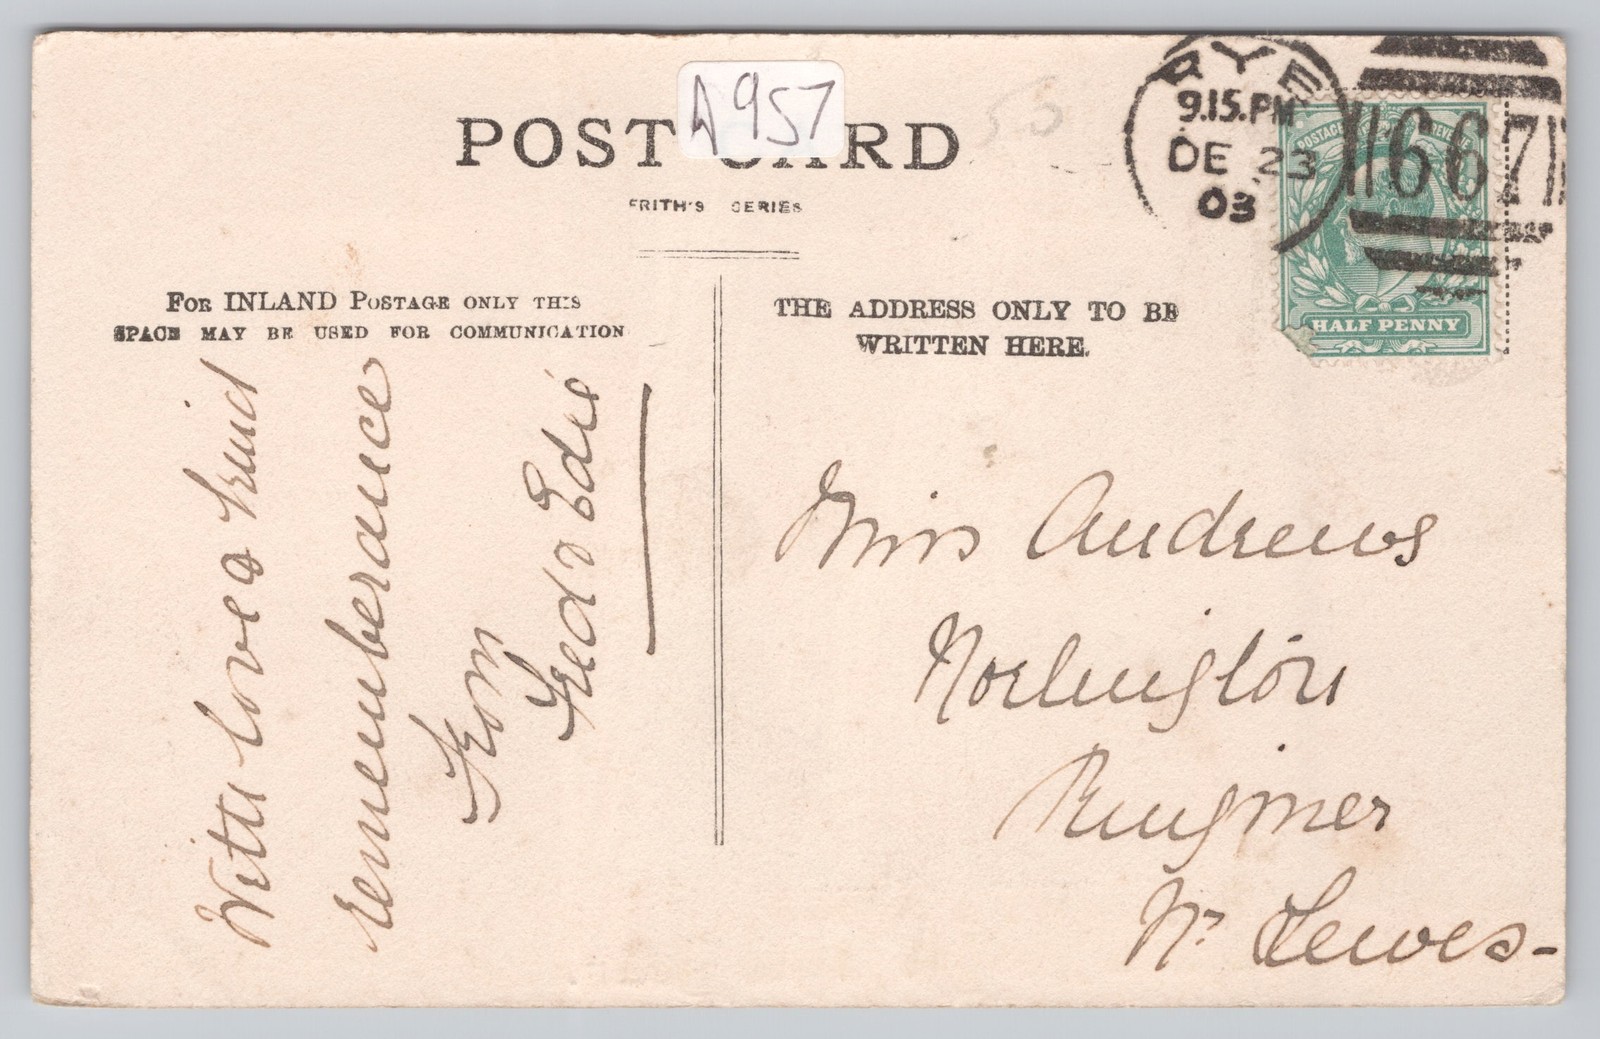 POST CARD
A957
FRITH'S SERIES
For INLAND Postage only this
space may be used for communication
THE ADDRESS ONLY TO BE
WRITTEN HERE.
RYE
9.15.PM
DE 23
03
667
POSTAGE REVENUE
HALF PENNY
With love & kind
rememberance
From
Fred & Edie
Miss Andrews
Norlington
Ringmer
Nr Lewes-